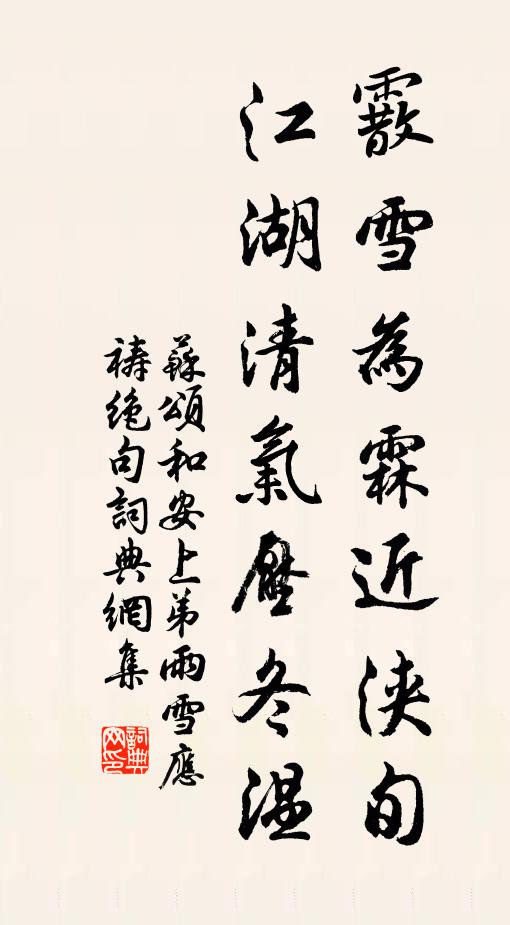 霰雪為霖近浹旬
江湖清氣壓冬温
蘇頌和安上弟雨雪應
禱絶句詞典網集
詞典网印